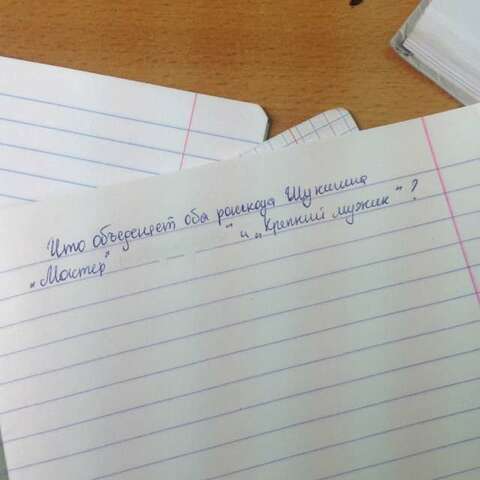 Что объеденяет оба рассказа Шукшина
„Мастер" " и „Крепкий мужик"?